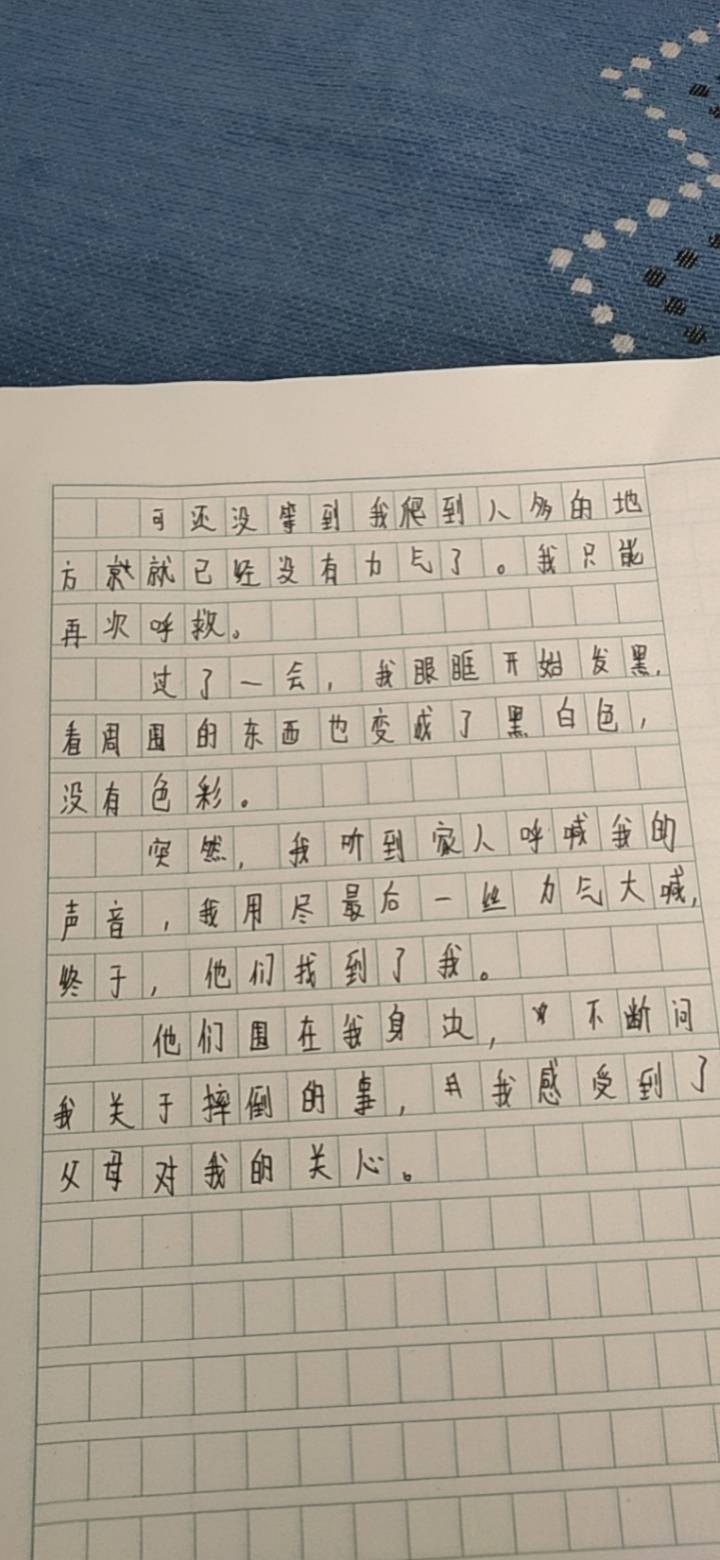 可还没等到我爬到人多的地
方就就已经没有力气了。我只能
再次呼救。
过了一会，我眼眶开始发黑，
看周围的东西也变成了黑白色，
没有色彩。
突然，我听到家人呼喊我的
声音，我用尽最后一丝力气大喊，
终于，他们找到了我。
他们围在我身边，不断问
我关于摔倒的事，我感受到了
父母对我的关心。